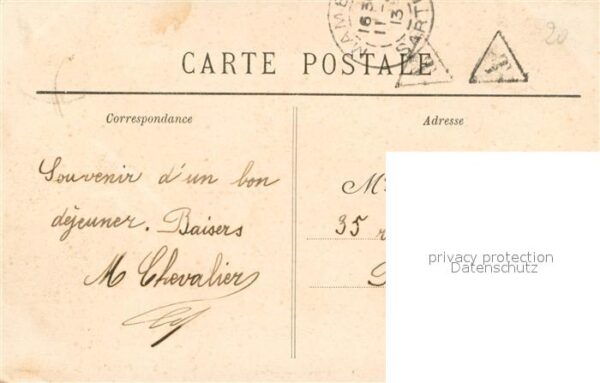 20
MAME
16 3
11
13
SARTH
CARTE POSTALE
T
T
Correspondance
Adresse
Souvenir d'un bon
déjeuner. Baisers
M Chevalier
M
35 r
privacy protection
Datenschutz